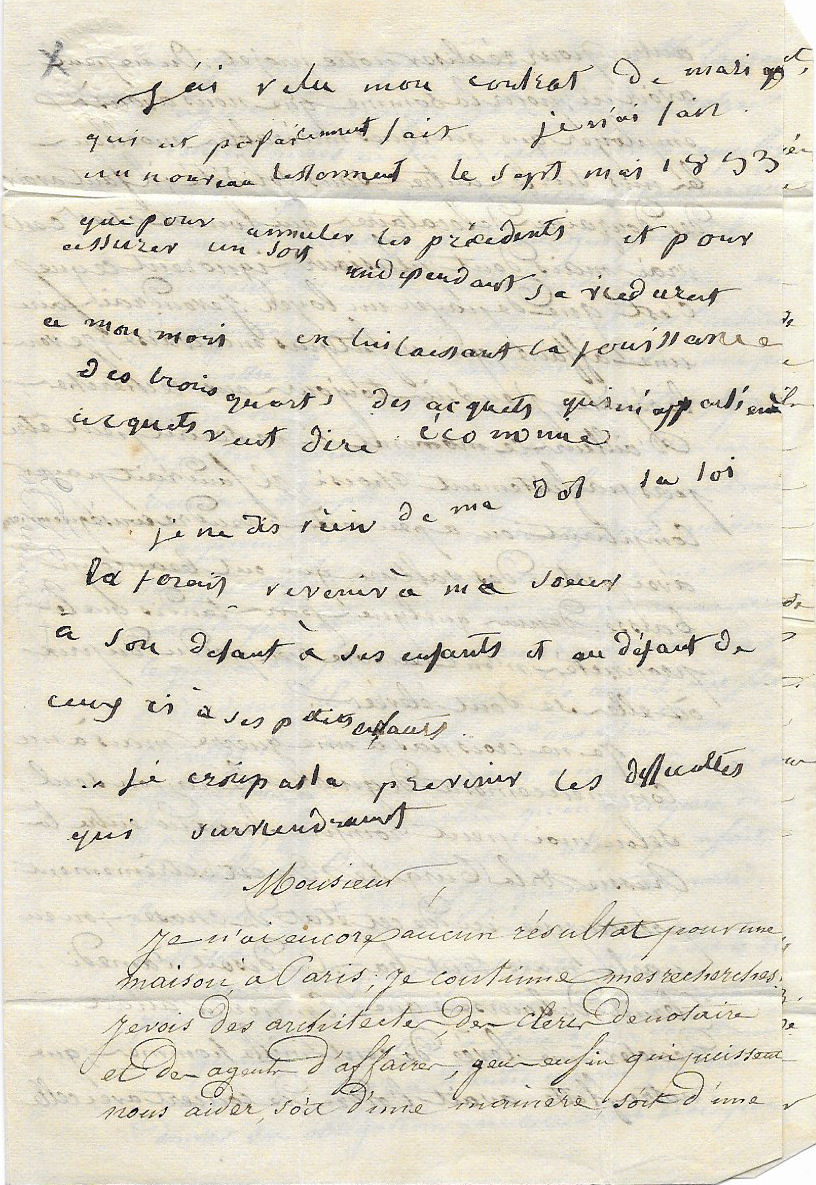 j'ai relu mon contrat de mariage
qui est parfaitement fait je n'ai fait
un nouveau testament le sept mai 1853
que pour annuler les précédents et pour
assurer un sort indépendant sa vie durant
a mon mari en lui laissant la jouissance
des trois quarts des acquets qui m'appartienn
acquets veut dire économie
je ne dis rien de ma dot la loi
la ferait revenir à ma soeur
à son defaut à ses enfants et au défaut de
ceux ci à ses petits enfants
je crois pas la prevenir les difficultes
qui surviendraient
Monsieur,
Je n'ai encore aucun résultat pour une
maison à Paris; je continue mes recherches
je vois des architectes, des clercs de notaire
et des agents d'affaires, gens enfin qui puissent
nous aider, soit d'une manière, soit d'une